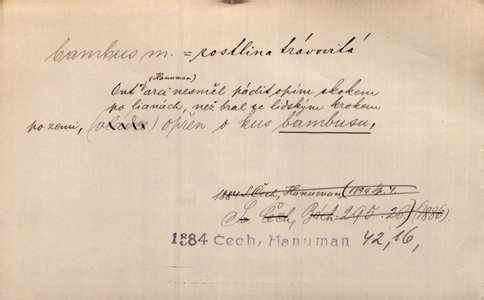 bambus m. = rostlina trávovitá
(Hanuman)
Ont' arci nesměl pádit opím skokem
po lianách, než bral se lidským krokem
po zemi, opřen o kus bambusu,
1884 S. Čech, Hanuman,
Sv. Čech, 295. 26) (1886).
1884 Čech, Hanuman 42, 16,